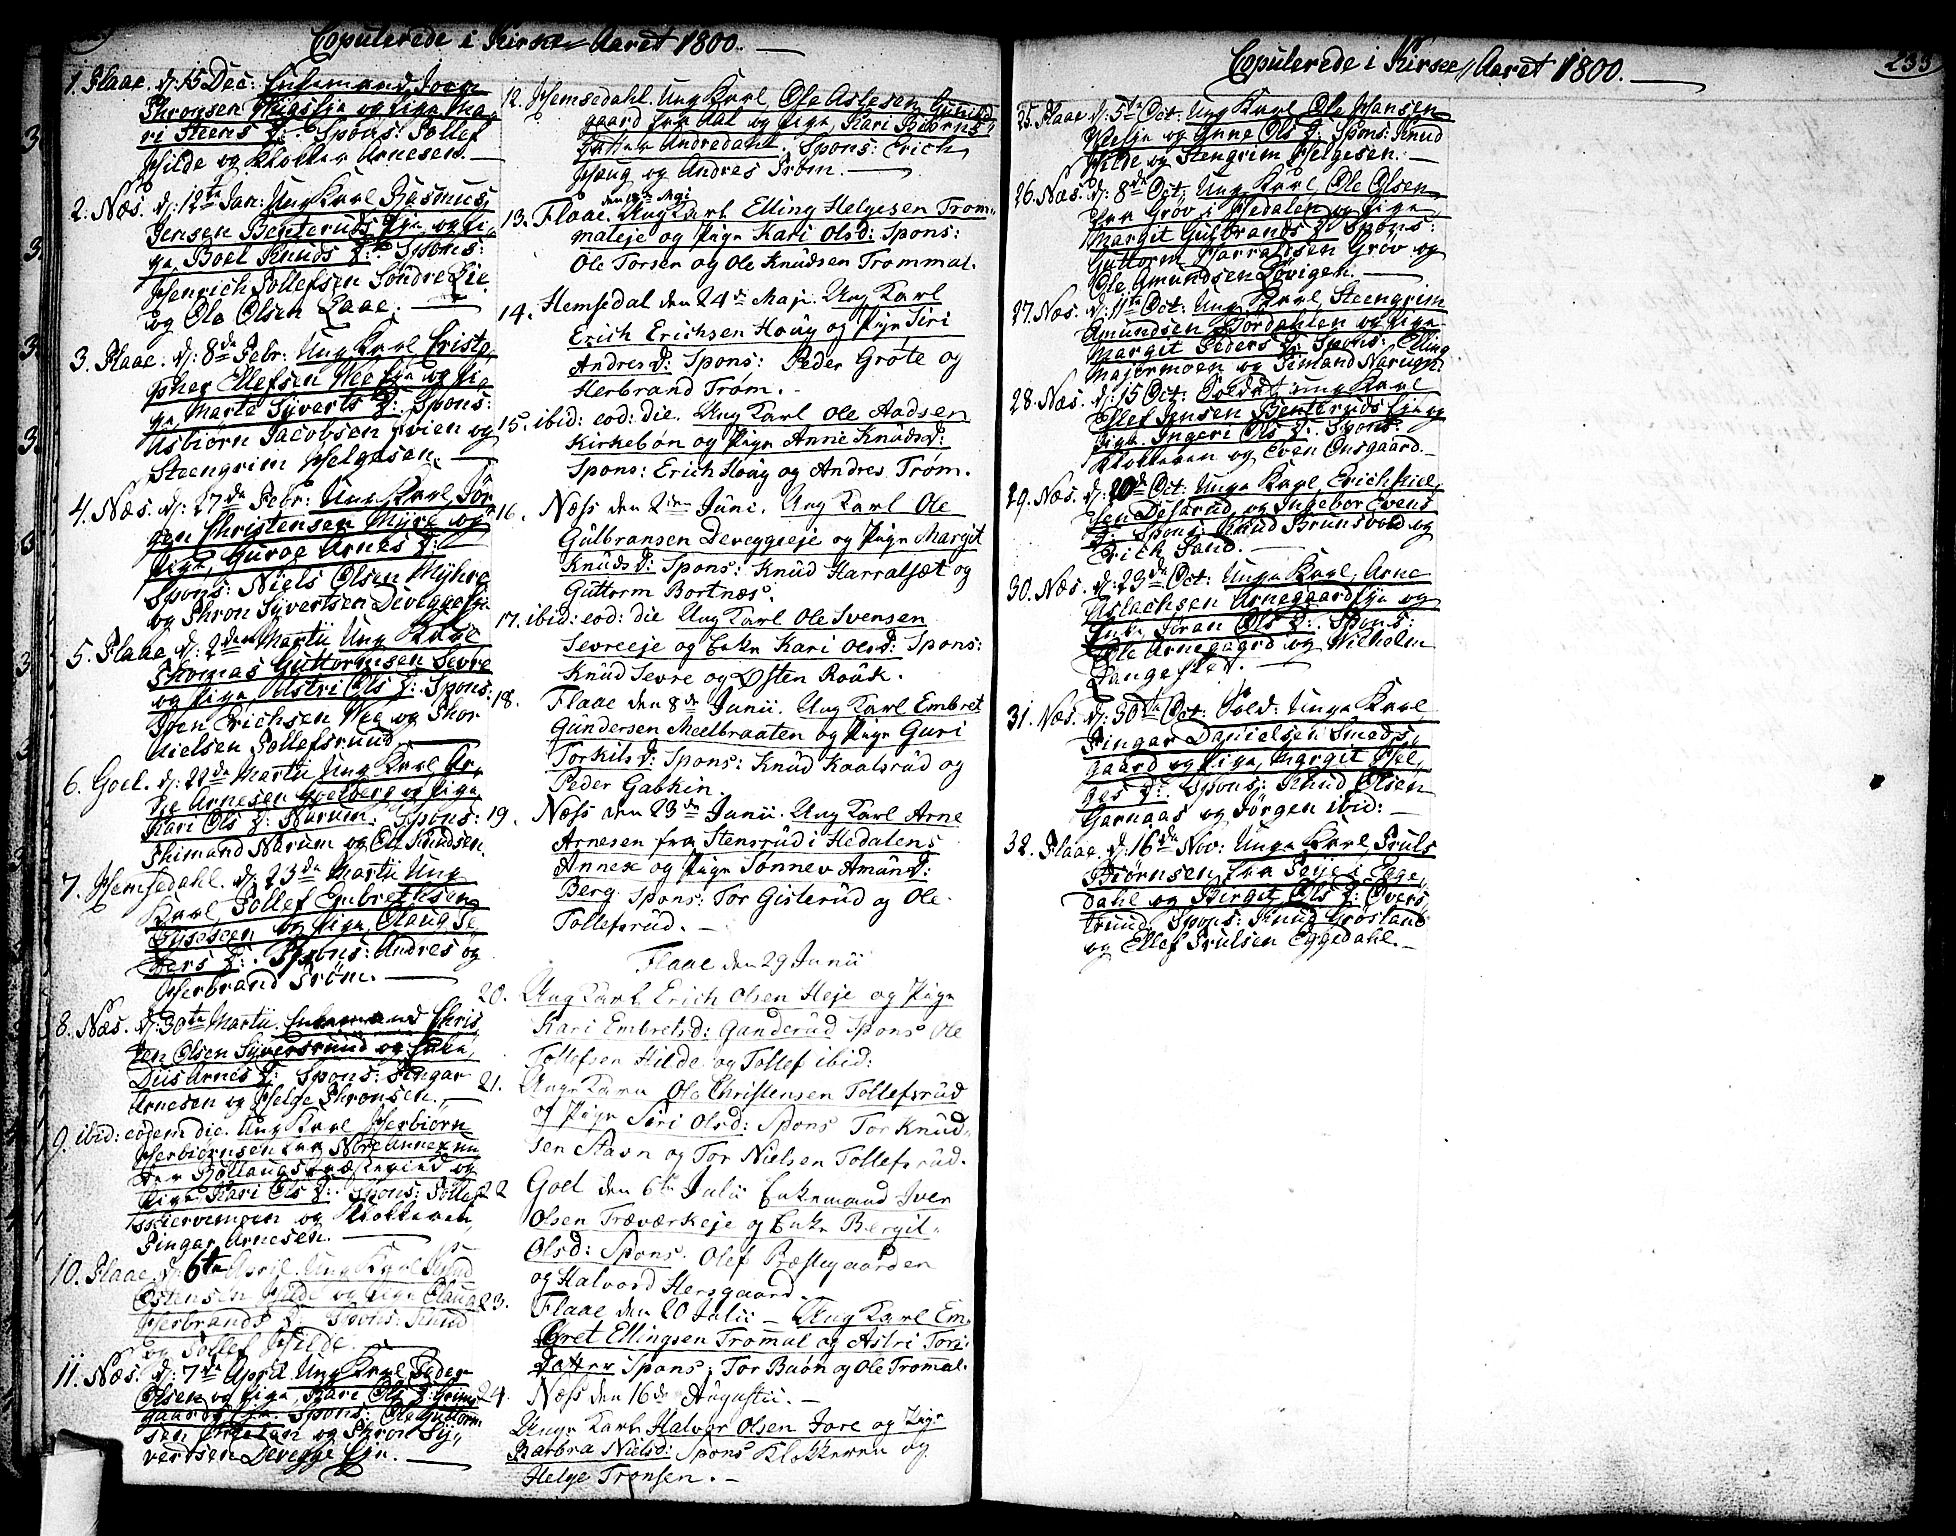 Copulerede i Kirke-Aaret 1800.
1. Flaae. d: 15 Dec: Enkemand Joen
Thronsen Vigslje og Pige Ma-
ri Steens D: Spons: Tollef
Hilde og Klokker Arnesen.
2. Næs. d: 12te Jan: Ung Karl Rasmus
Jensen Benteruds Eje og Pi-
ge Boel Knuds D: Spons:
Henrich Tollefsen Søndre Lie
og Ole Olsen Laae.
3. Flaae. d: 8de Febr: Ung Karl Cristo-
pher Ellefsen Wee Eje og Pi-
ge Marte Syverts D: Spons:
Asbiørn Jacobsen og
Steengrim Helgesen.
4. Næs. d: 27de Febr: Ung Karl Jør-
gen Christensen Myre og
Pige Guroe Arnes D:
Spons: Niels Olsen Myhre
og Thron Syvertsen Deveggeeje
5. Flaae d: 2den Martii Ung Karl
Thomas Guttormsen Sevre
og Pige Astri Ols D: Spons:
Joen Erichsen Wee og Thor
Nielsen Tollefsruud
6. Goel. d: 22de Martii Ung Karl Ar-
ne Arnesen Goelberg og Pige
Kari Ols D: Narum. Spons:
Thimand Narum og Ole Knudsen.
7. Hemsedahl. d: 23de Martii Ung
Karl Tollef Enbrethsen
og Pige Olaug Pe-
ders D: Spons: Andres og
Herbrand Trøm.
8. Næs. d: 30te Martii. Enkemand Chris-
ten Olsen Syversruud og Enke
Arnes D: Spons: Fingar
Arnesen og Helge Thronsen.
9. ibid: eodem die. Ung Karl Herbiørn
Herbiørnsen fra Nore Annex un-
der Rollaugs Præstegield og
Pige Kari Ols D: Spons: Tollef
Skiervemoen og Klokkeren
Fingar Arnesen.
10. Flaae d: 6te April. Ung Karl Knud
Østensen Hilde og Pige Olaug
Herbrands D: Spons: Knud
og Tollef Hilde.
11. Næs. d: 7de April Ung Karl Peder
Olsen og Pige Kari Ols D: Grims-
gaards Eje. Spons: Ole Guttorm-
sen og Thron Sy-
vertsen Devegge Eje.
12. Hemsedahl. Ung Karl Ole Aslesen Gunild-
gaard fra Aal og Pige Kari Biørns-
datter Andredahl. Spons: Erich
Houg og Andres Trøm.
den 18de Maj
13. Flaae. Ung Karl Elling Helgesen Trom-
maleje og Pige Kari Olsd: Spons:
Ole Torsen og Ole Knudsen Trommal.
14. Hemsedal den 24de Maji. Ung Karl
Erich Erichsen Houg og Pige Siri
Andresd: Spons: Peder Grøte og
Herbrand Trøm.
15. ibid: eod: die. Ung Karl Ole Aadsen
Kirkebøn og Pige Anne Knudsd:
Spons: Erich Houg og Andres Trøm.
16. Næss den 2den Juni. Ung Karl Ole
Gulbransen Deveggeeje og Pige Margit
Knudsd: Spons: Knud Harralsæt og
Guttorm Bortnæs.
17. ibid: eod: die Ung Karl Ole Svensen
Sevreeje og Enke Kari Olsd: Spons:
Knud Sevre og Østen Rouk.
18. Flaae den 8de Junii. Ung Karl Embret
Gundersen Meelbraaten og Pige Guri
Torkilsd: Spons: Knud Kaalsrud og
Peder Gabkin.
19. Næss den 23de Junii. Ung Karl Arne
Arnesen fra Stensrud i Hedalens
Annexe og Pige Sønnev Amundd:
Berg Spons: Tor Gisterud og Ole
Tollefsrud.
Flaae den 29 Junii
20. Ung Karl Erich Olsen Heje og Pige
Kari Embretsd: Ganderud Spons Ole
Tollefsen Hilde og Tollef ibid:
21. Unge Karn Ole Christensen Tollefsrud
og Pige Siri Olsd: Spons Tor Knud-
sen Stavn og Tor Nielsen Tollefsrud.
22 Goel den 6te Julii Enkemand Iver
Olsen Træværkeje og Enke Bergit
Olsd: Spons. Olef Præstegaarden
og Halvord Hersgaard.
23. Flaae den 20 Julii Ung Karl Em-
bret Ellingsen Tromal og Astri Tors-
datter Spons: Tor Buøn og Ole Tromal.
24. Næss den 16de Augustii.
Unge Karl Halvor Olsen Jore og Pige
Barbra Nielsd: Spons Klokkeren og
Helge Tronsen.
Copulerede i Kirke-Aaret 1800.
235
25. Flaae d: 5te Oct: Ung Karl Ole Hansen
og Anne Ols D: Spons: Knud
Hilde og Stengrim Helgesen.
26. Næs. d: 8de Oct: Ung Karl Ole Olsen
fra Grøv i Hedalen og Pige
Margit Gulbrands D: Spons:
Guttorm Harraldsen Grøv og
Ole Amundsen Løvigen.
27. Næs. d: 11te Oct: Unge Karl Steengrim
Amundsen Børdahlen og Pige
Margit Peders D: Spons: Elling
Majormoen og Simand Narum
28. Næs. d: 15 Oct: Soldat unge Karl
Ellef Jensen Benteruds Eje og
Pige Ingeri Ols D: Spons:
Klokkeren og Even Onsgaard.
29. Næs. d: 20de Oct: Unge Karl Erich Kiel-
sen Diserud og Ingebor Evens
D: Spons: Knud Brunsvold og
Erich Sand.
30. Næs. d: 23de Oct: Unge Karl Arne
Aslachsen Arnegaards Eje og
Enke Jøran Ols D: Spons:
Ole Arnegaard og Wilholm
Langested.
31. Næs. d: 30te Oct: Sold: Unge Karl
Fingar Danielsen Smeds-
gaard og Pige Margit Hel-
ges D: Spons: Knud Olsen
Garnaas og Jørgen ibid:
32. Flaae d: 16de Nov: Unge Karl Truls
Biørnsen fra Teije i Egge-
dahl og Birgit Ols D: Øvers-
truud. Spons: Knud Grøsland
og Ellef Trulsen Eggedahl.